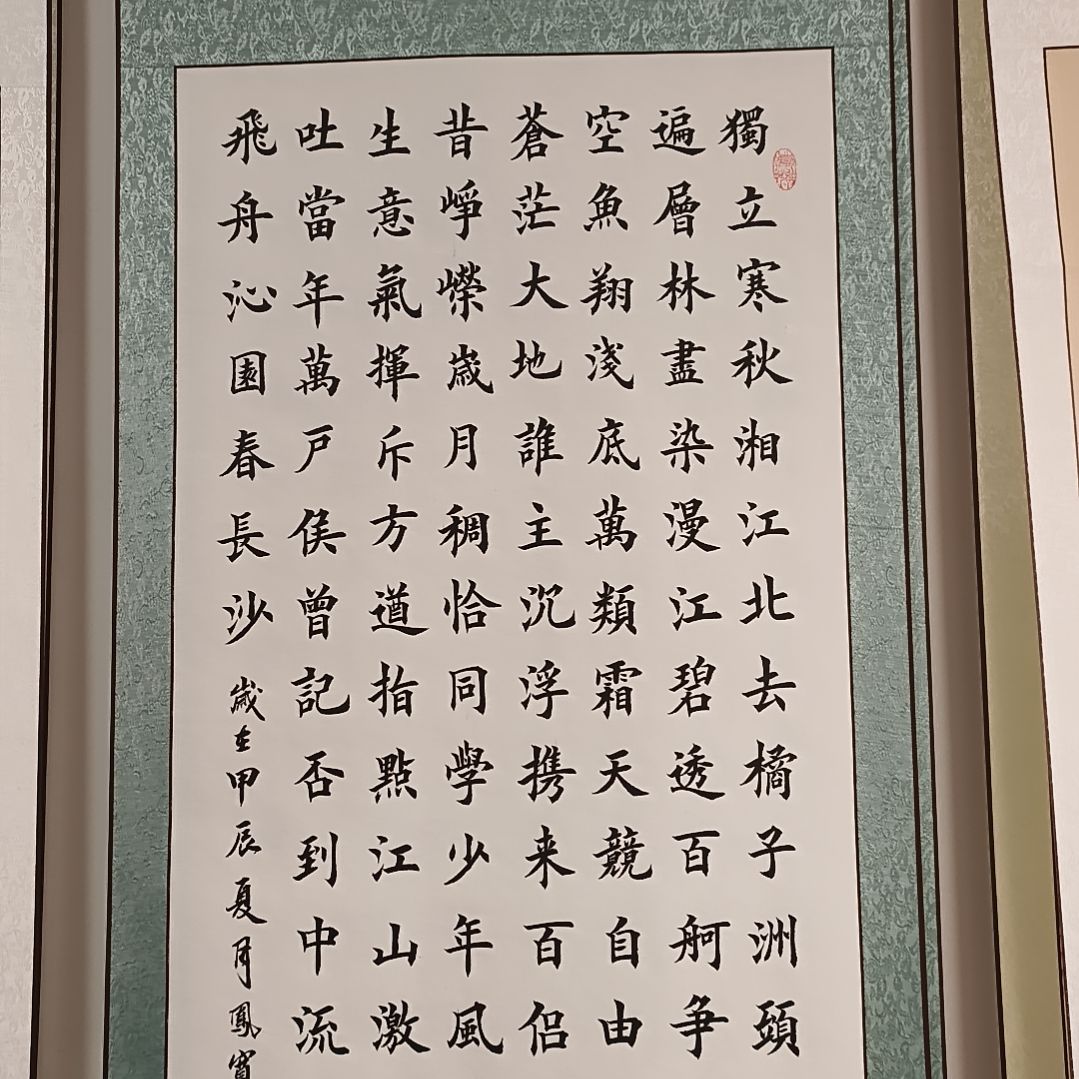 獨立寒秋湘江北去橘子洲頭
遍層林盡染漫江碧透百舸爭
空魚翔淺底萬類霜天競自由
蒼茫大地誰主沉浮携来百侣
昔崢嶸歲月稠恰同學少年風
生意氣揮斥方遒指點江山激
吐當年萬戸侯曾記否到中流
飛舟沁園春長沙歲在甲辰夏月鳳